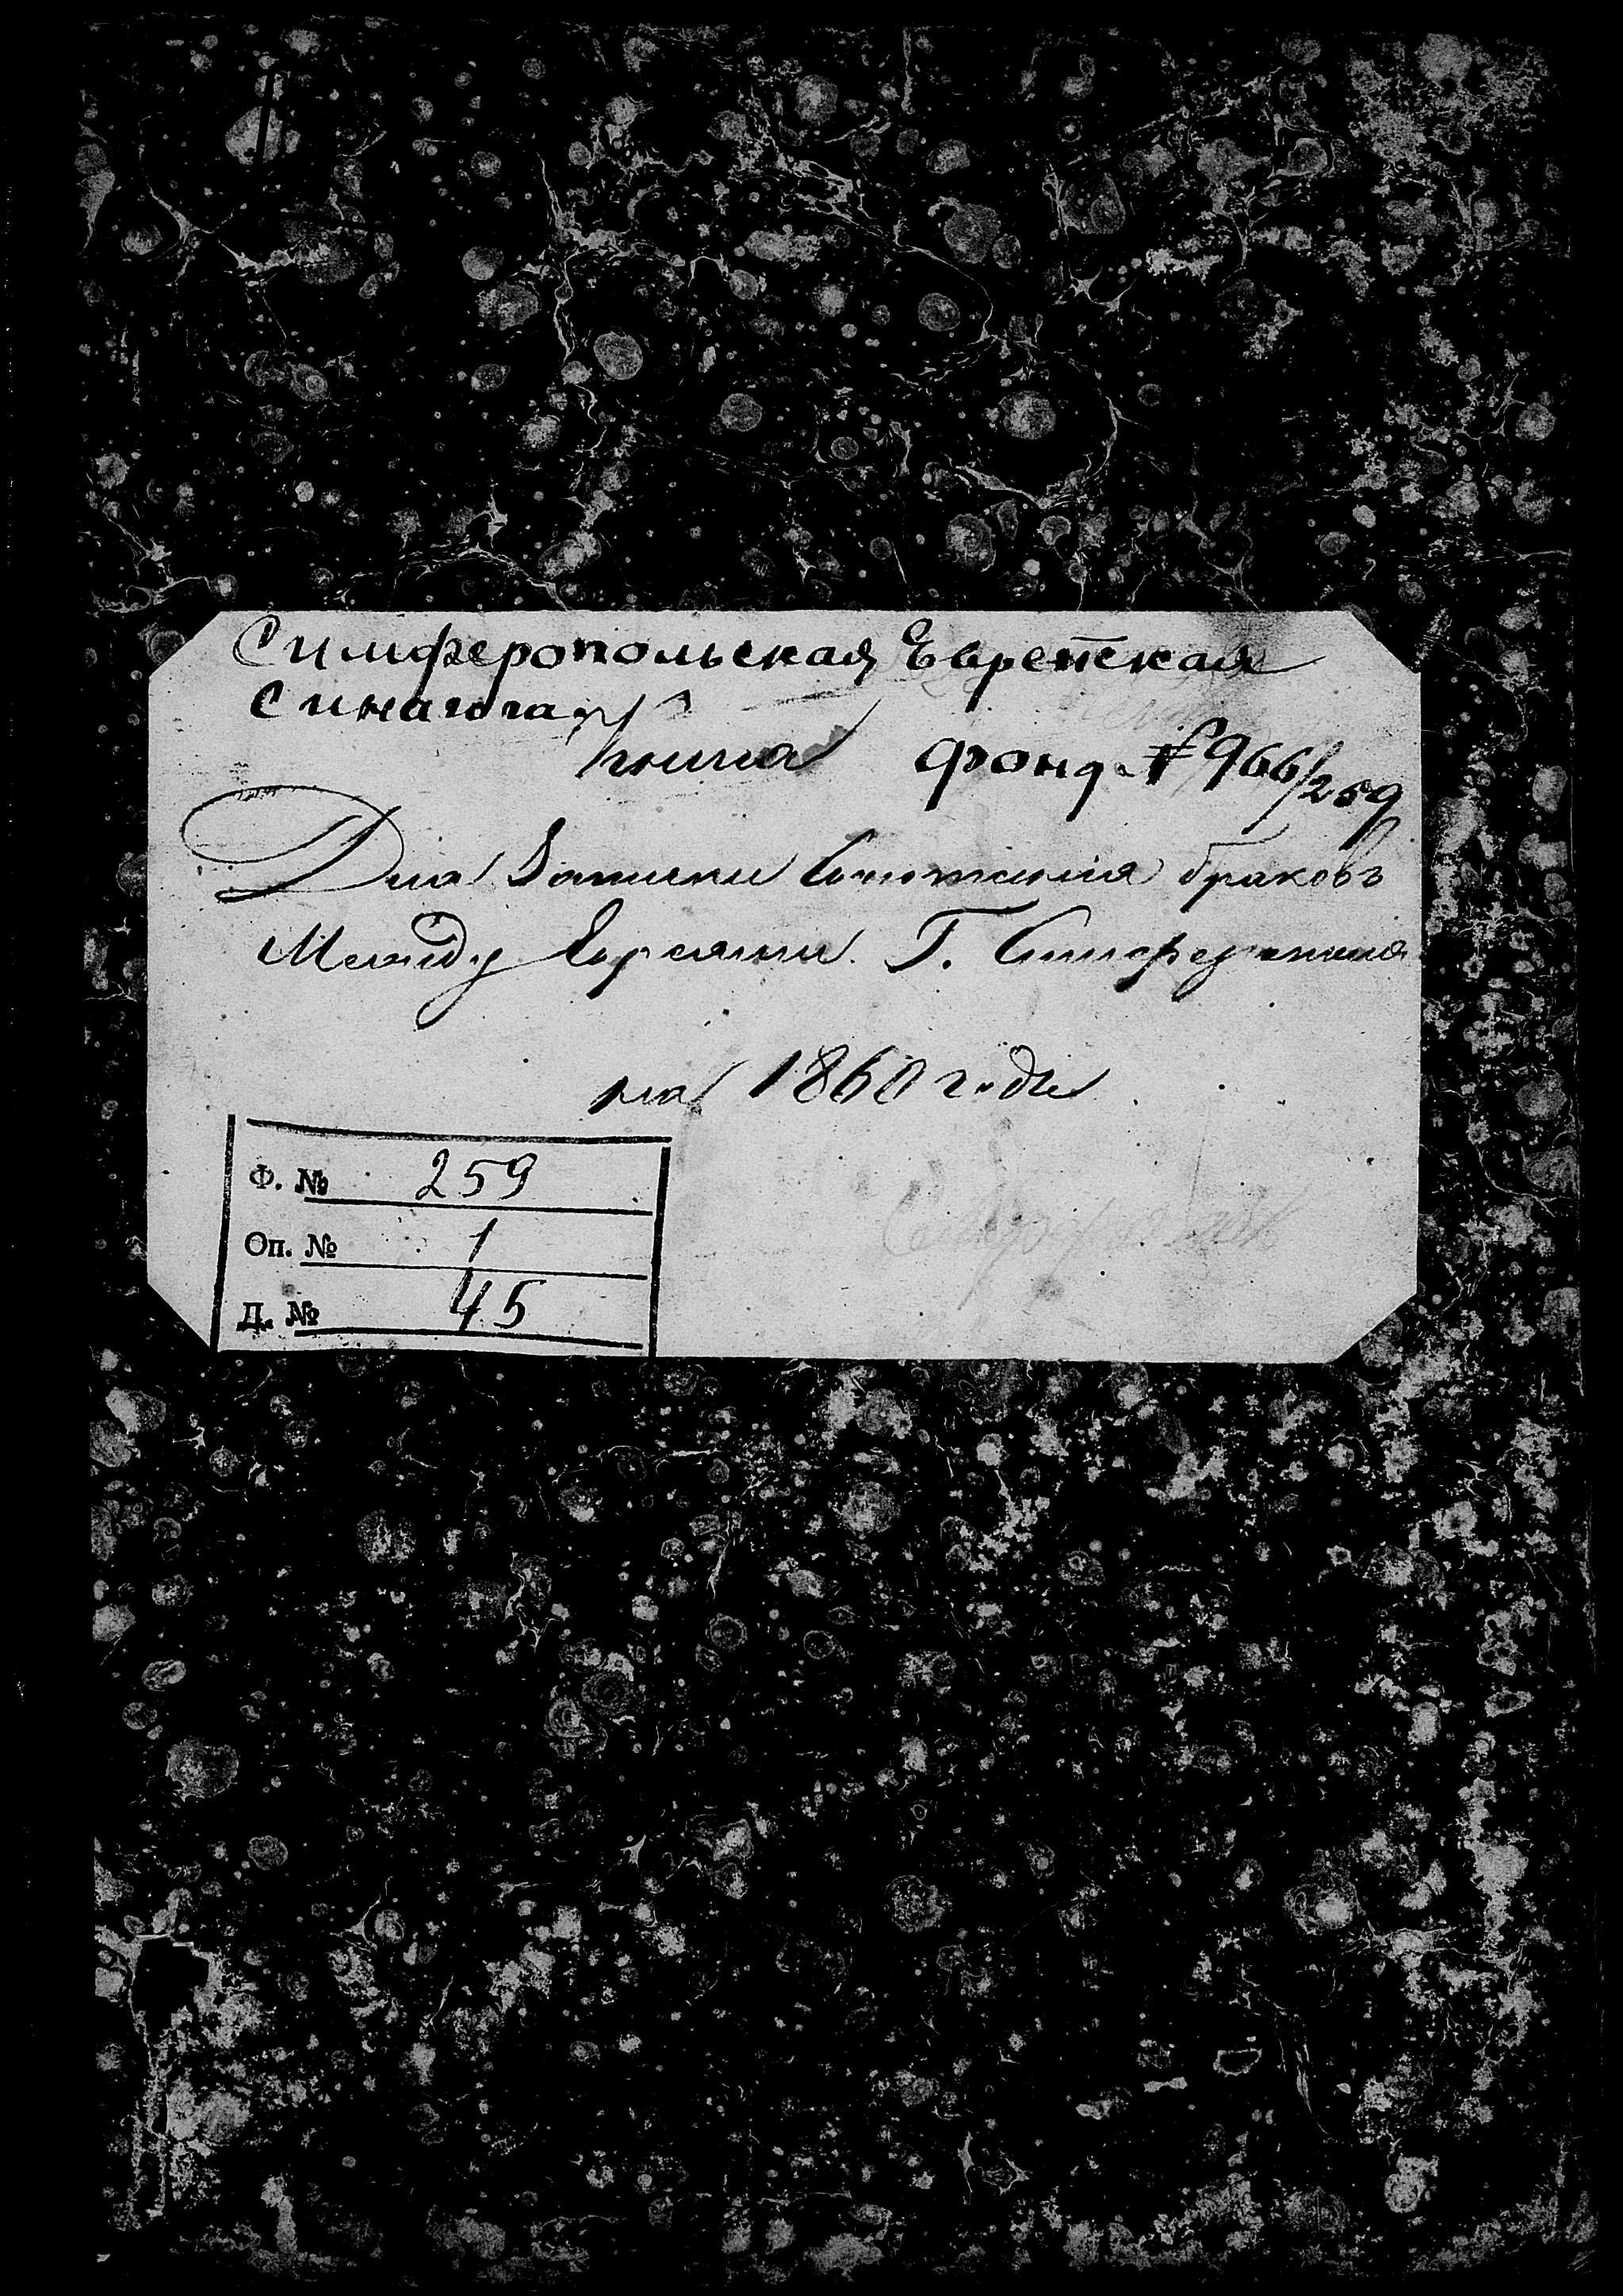 Симферопольская Еврейская
Синагога
Книга фонд № 966/259
Для Записки Сочетания браковъ
Между Евреями Г. Симферополя
на 1860 годъ
Ф. № 259
Оп. № 1
Д. № 45